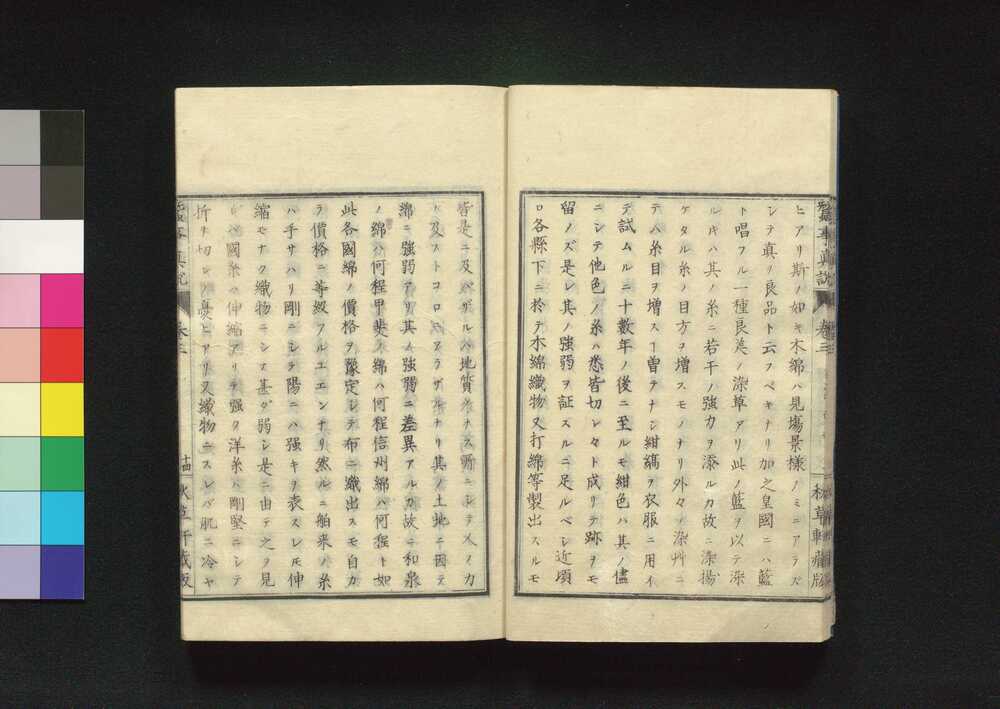 ヒアリ斯ノ如キ木綿ハ見塲景樣ノミニアラズ
シテ真ノ良品ト云フベキナリ加之皇國ニハ藍
ト唱フル一種良美ノ染草アリ此ノ藍ヲ以テ染
ルキハ其ノ糸ニ若干ノ強力ヲ添ルカ故ニ染揚
ケタル糸ノ目方ヲ増スモノナリ外々ノ染艸ニ
テハ糸目ヲ増スヿ曽テナシ紺縞ヲ衣服ニ用イ
テ試ムルニ十數年ノ後ニ至ルモ紺色ハ其ノ儘
ニシテ他色ノ糸ハ悉皆切レ々ト成リテ跡ヲモ
留ノズ是レ其ノ強弱ヲ証スルニ足ルベシ近頃
ロ各縣下ニ於テ木綿織物又打綿等製出スルモ
蠶事真説
卷三
秋草軒藏版
皆是ニ及バザルハ地質ナス所ニシテ人ノカ
ノ及ストコロニアラザルナリ其ノ土地ニ因テ
綿ニ強弱アリ其ノ強弱ニ差異アルカ故ニ和泉
ノ綿ハ何程甲斐ノ綿ハ何程信州綿ハ何程ト如
此各國綿ノ價格ヲ豫定レテ布ニ織出スモ自カ
ラ價格ニ等級フルユエンナリ然ルニ舶来ノ糸
ハ手サハリ剛ニシテ陽ニハ強キヲ表スレ𪜈伸
縮モナク織物ニシス甚ダ弱シ是ニ由テ之ヲ見
レバ國糸ハ伸縮アリテ強ク洋糸ハ剛堅ニシテ
折レ切レノ憂ヒアリ又織物ニスレバ肌ニ冷ヤ
十四